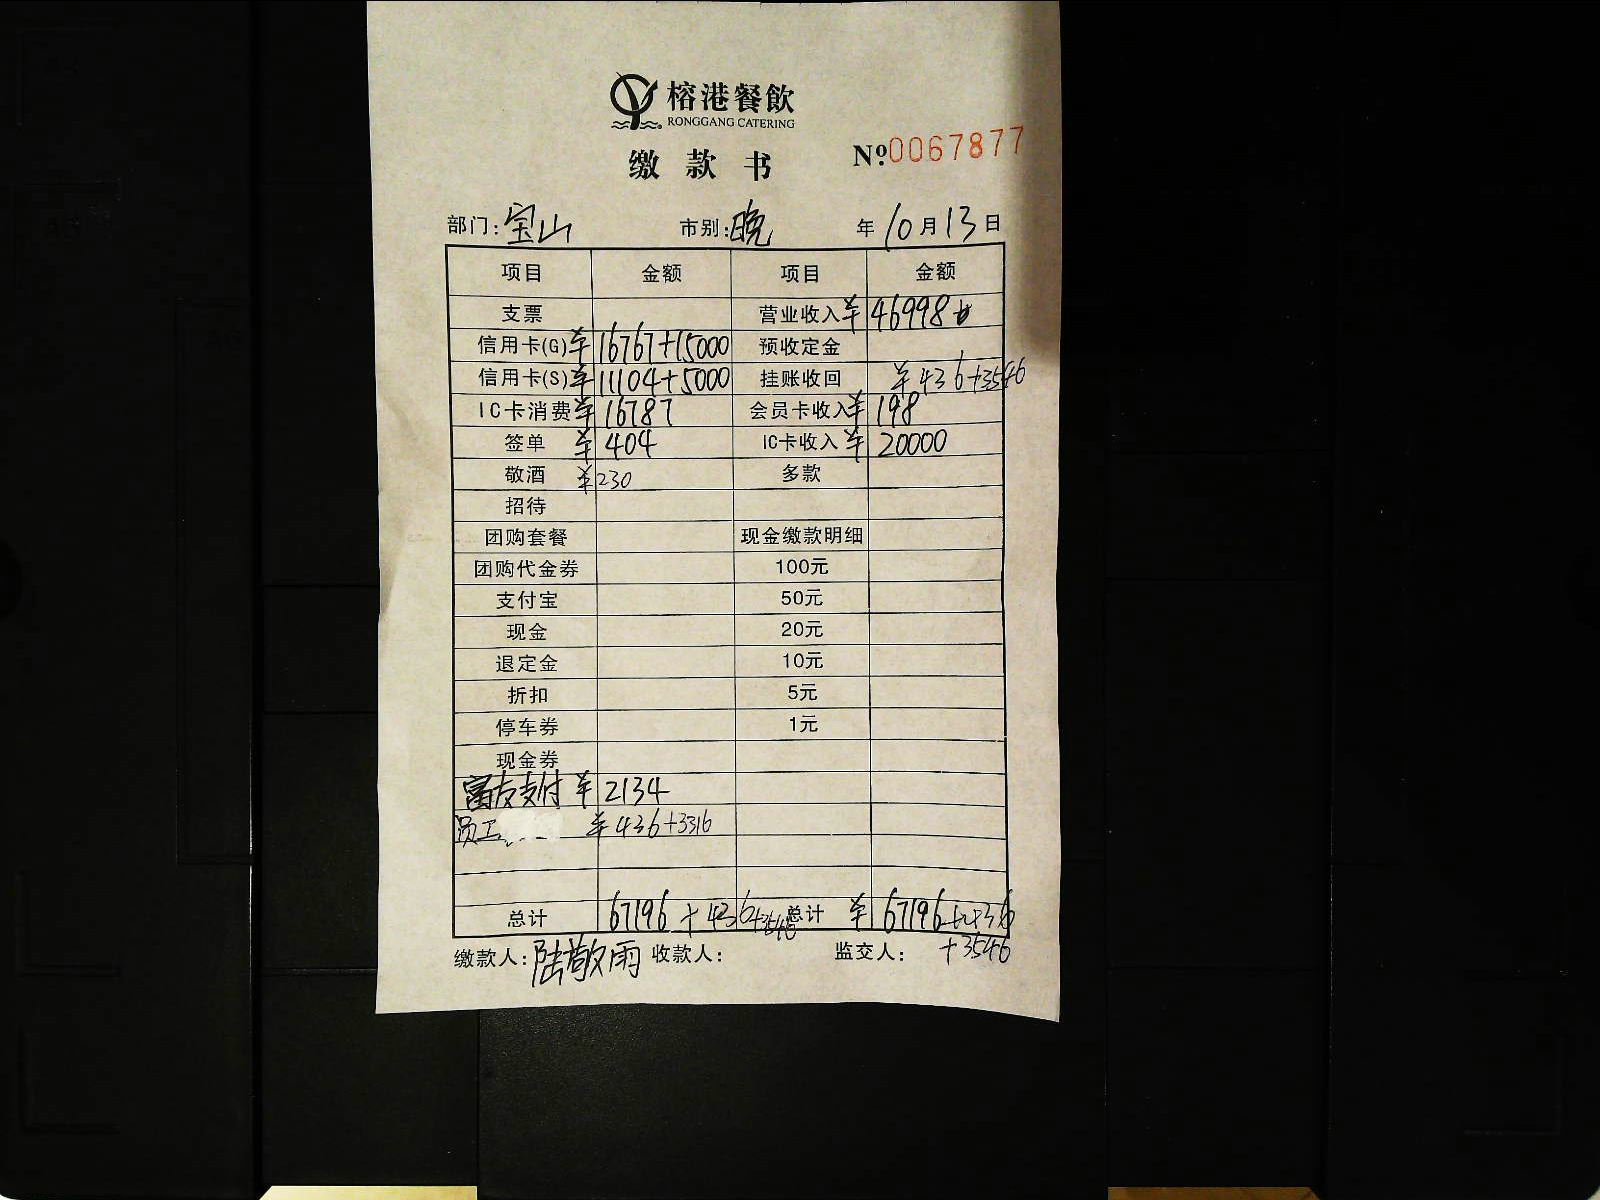 榕港餐飲
RONGGANG CATERING
缴款书 Nº:0067877
部门:宝山 市别:晚 年10月13日
项目 金额 项目 金额
支票 营业收入 ¥46998
信用卡(G) ¥16767+15000 预收定金
信用卡(S) ¥11104+5000 挂账收回 ¥436+3546
IC卡消费 ¥16787 会员卡收入 ¥198
签单 ¥404 IC卡收入 ¥20000
敬酒 ¥230 多款
招待
团购套餐 现金缴款明细
团购代金券 100元
支付宝 50元
现金 20元
退定金 10元
折扣 5元
停车券 1元
现金券
富友支付 ¥2134
员工 ¥436+3316
总计 67196+436+3546 总计 ¥67196+436
+3546
缴款人:陆敬雨 收款人: 监交人: